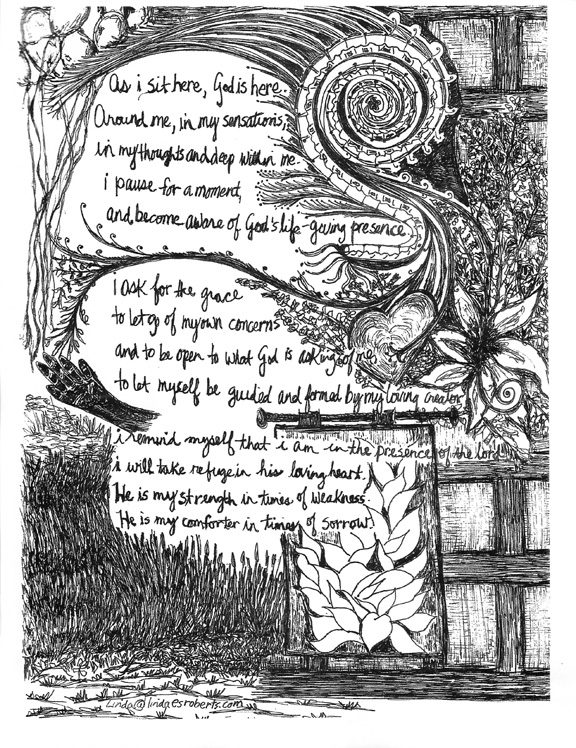 As i sit here, God is here.
Around me, in my sensations,
in my thoughts and deep within me.
i pause for a moment,
and become aware of God's life-giving presence
I ask for the grace
to let go of my own concerns
and to be open to what God is asking of me,
to let myself be guided and formed by my loving creator
i remind myself that i am in the presence of the lord
i will take refuge in his loving heart.
He is my strength in times of weakness.
He is my comforter in times of sorrow.
Linda@lindaesroberts.com